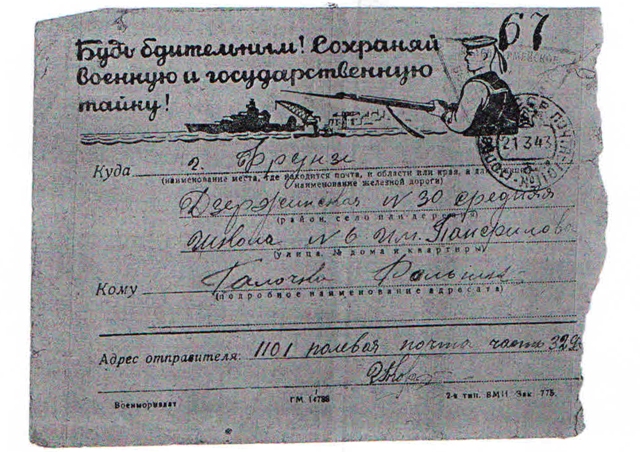 67
Будь бдительным! Сохраняй
военную и государственную
тайну!
21 3 43
Куда г. Фрунзе
(наименование места, где находится почта, и области или края, а для
наименование железной дороги)
Дзержинская N 30 средняя
(район, село или
школа N 6 им. Панфилова
(улица, № дома и квартиры)
Кому Галочке
(подробное наименование адресата)
Адрес отправителя: 1101 полевая почта часть 329
Военмориздат ГМ 14788 2-я тип. ВМИ Зак. 775.